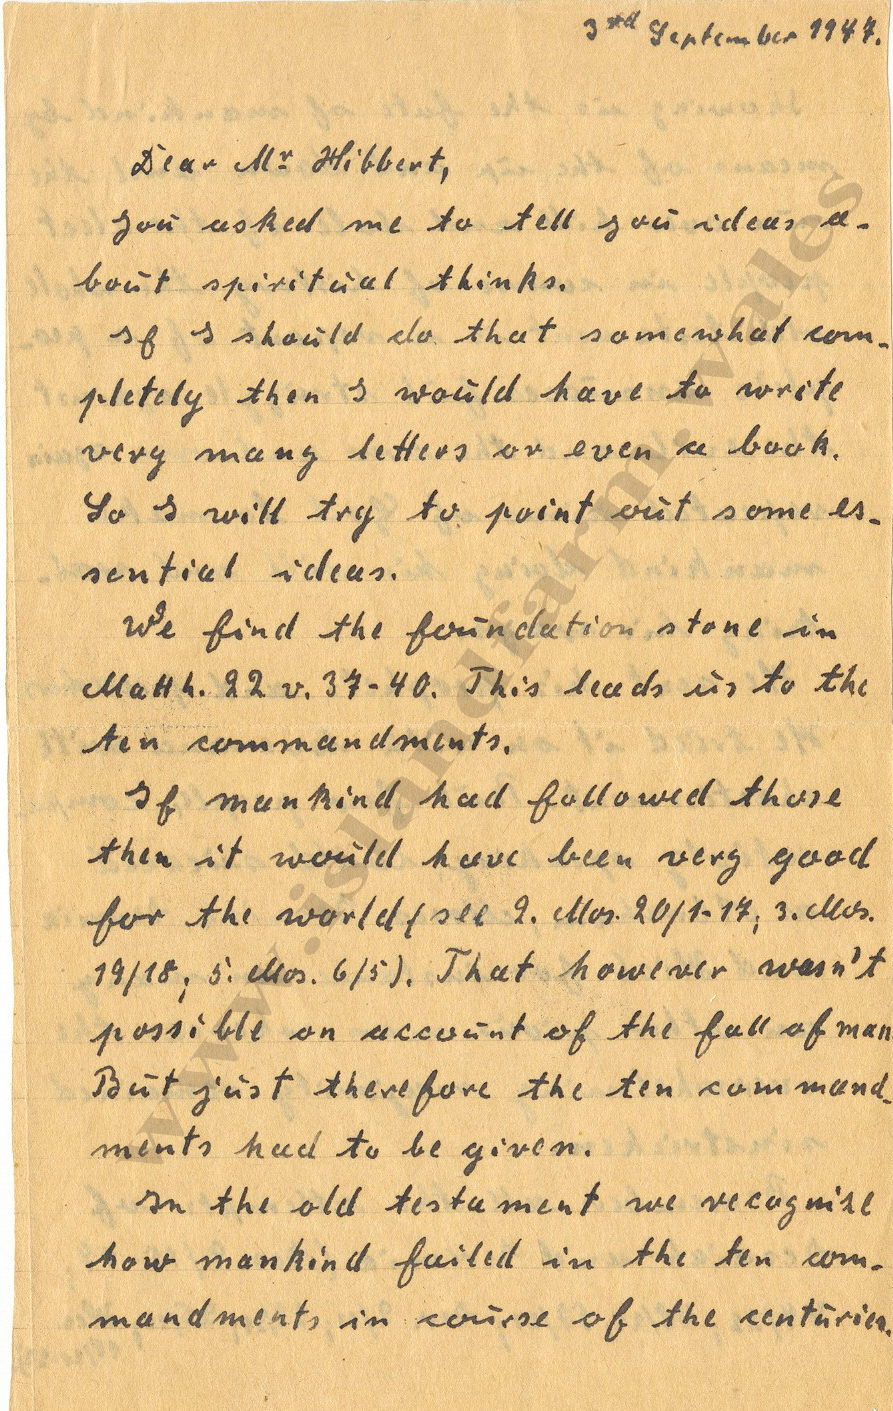 3rd September 1947.
Dear Mr Hibbert,
you asked me to tell you ideas a-
bout spiritual thinks.
If I should do that somewhat com-
pletely then I would have to write
very many letters or even a book.
So I will try to point out some es-
sential ideas.
We find the foundation stone in
Matth. 22 v. 37-40. This leads us to the
ten commandments.
If mankind had followed those
then it would have been very good
for the world (see 2. Mos. 20/1-17; 3. Mos.
19/18; 5. Mos. 6/5). That however wasn't
possible on account of the fall of man
But just therefore the ten command-
ments had to be given.
In the old testament we recognise
how mankind failed in the ten com-
mandments in course of the centuries.
www.islandfarm.wales